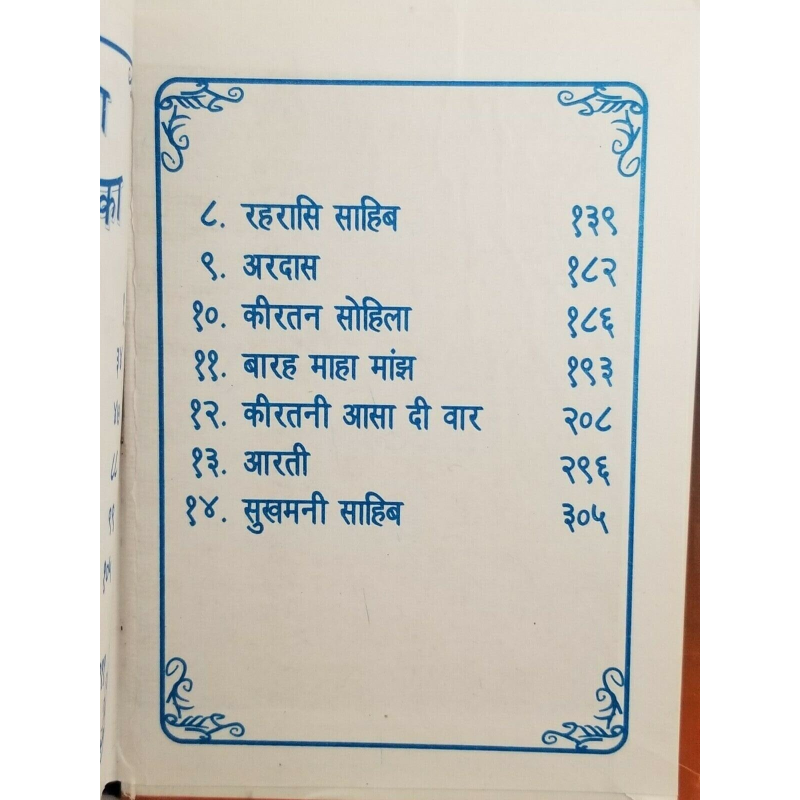 ८. रहरासि साहिब १३९
९. अरदास १८२
१०. कीरतन सोहिला १८६
११. बारह माहा मांझ १९३
१२. कीरतनी आसा दी वार २०८
१३. आरती २९६
१४. सुखमनी साहिब ३०५